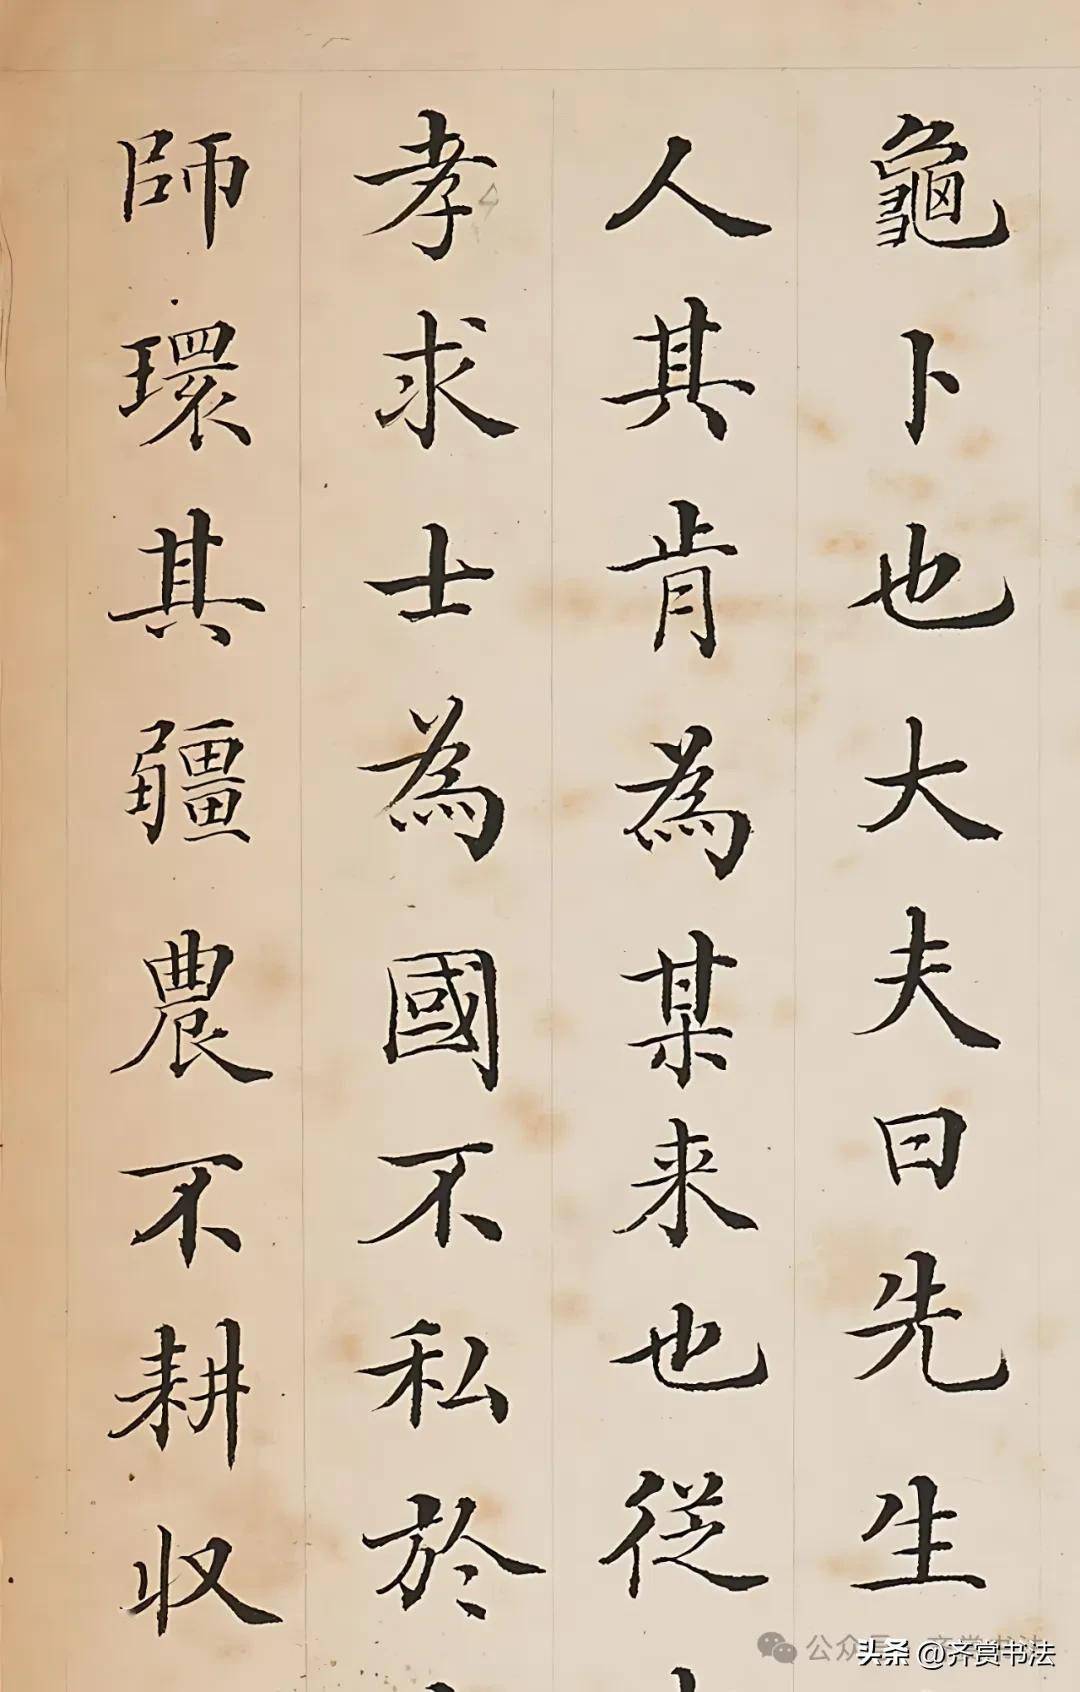 龜卜也大夫曰先生
人其肯為某来也従
孝求士為國不私於
師環其疆農不耕収
公众号 · 齐赏书法
头条 @齐赏书法